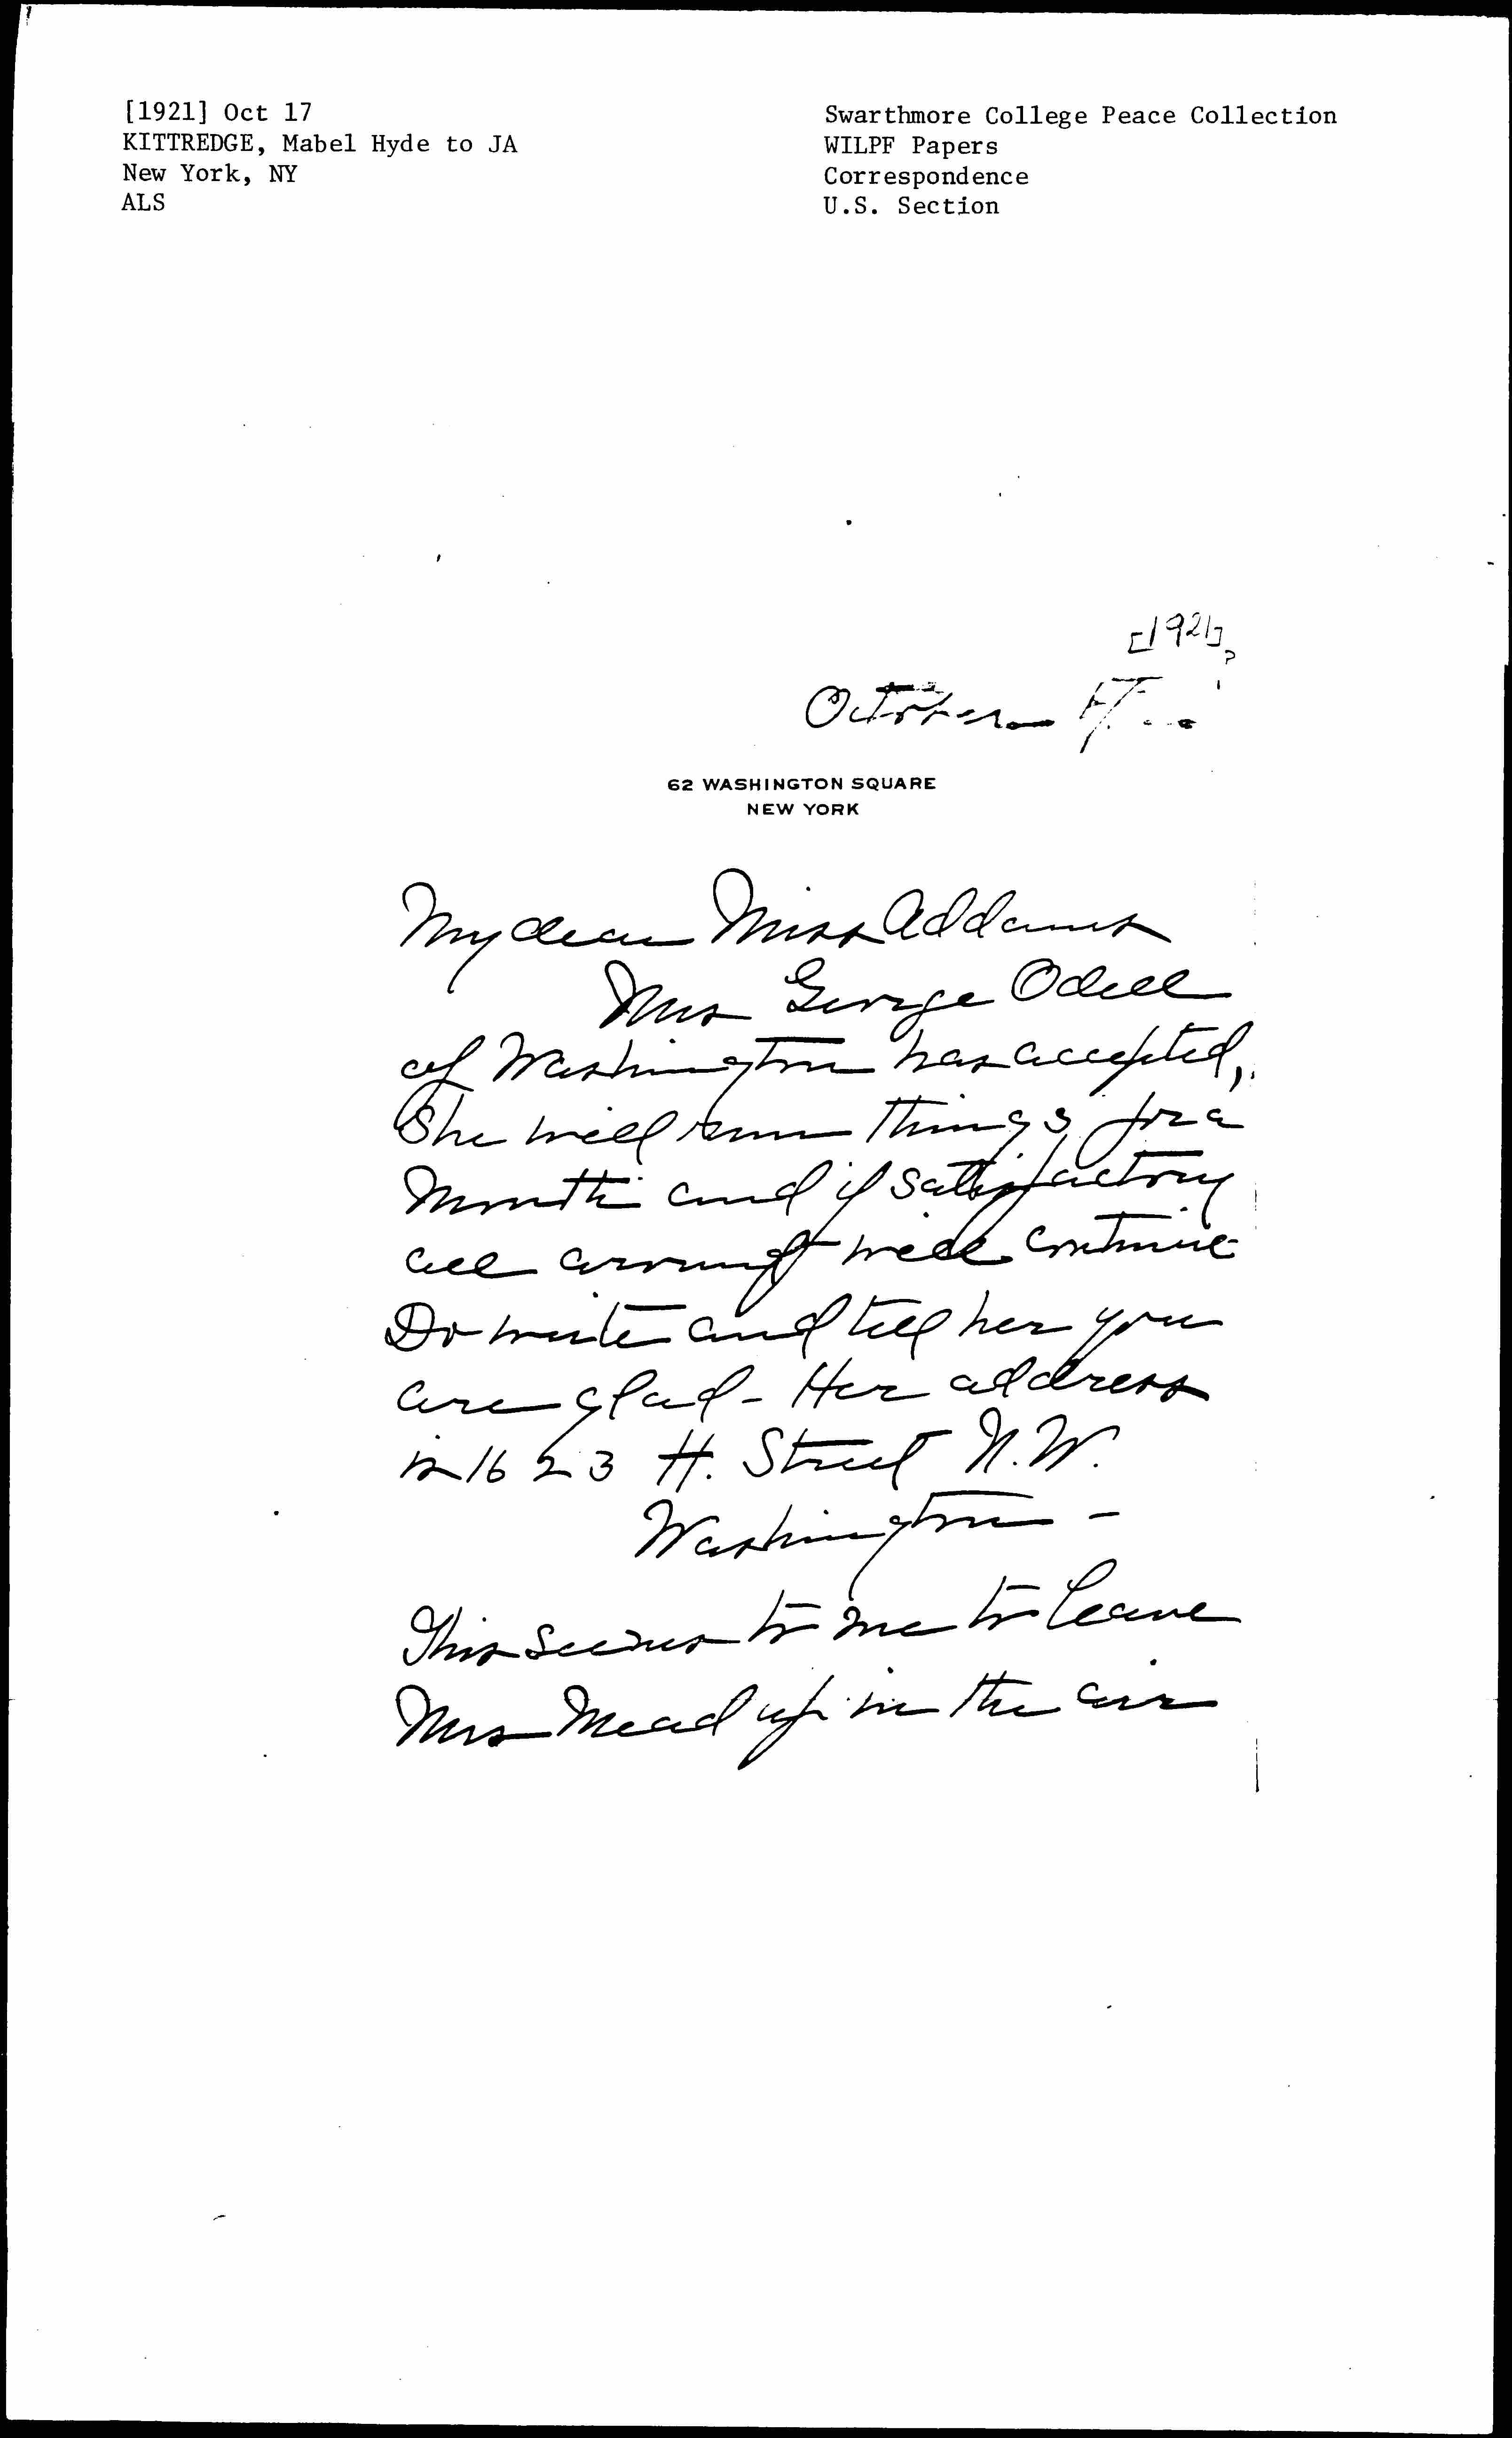 [1921] Oct 17
KITTREDGE, Mabel Hyde to JA
New York, NY
ALS
Swarthmore College Peace Collection
WILPF Papers
Correspondence
U.S. Section
[1921]?
October 17
62 WASHINGTON SQUARE
NEW YORK
My dear Miss Addams
Mrs George Odell
of Washington has accepted,
She will run things for a
month and if satisfactory
all around will continue
Do write and tell her you
are glad - Her address
is 1623 H. Street N.W.
Washington -
This seems to me to leave
Mrs Mead up in the air